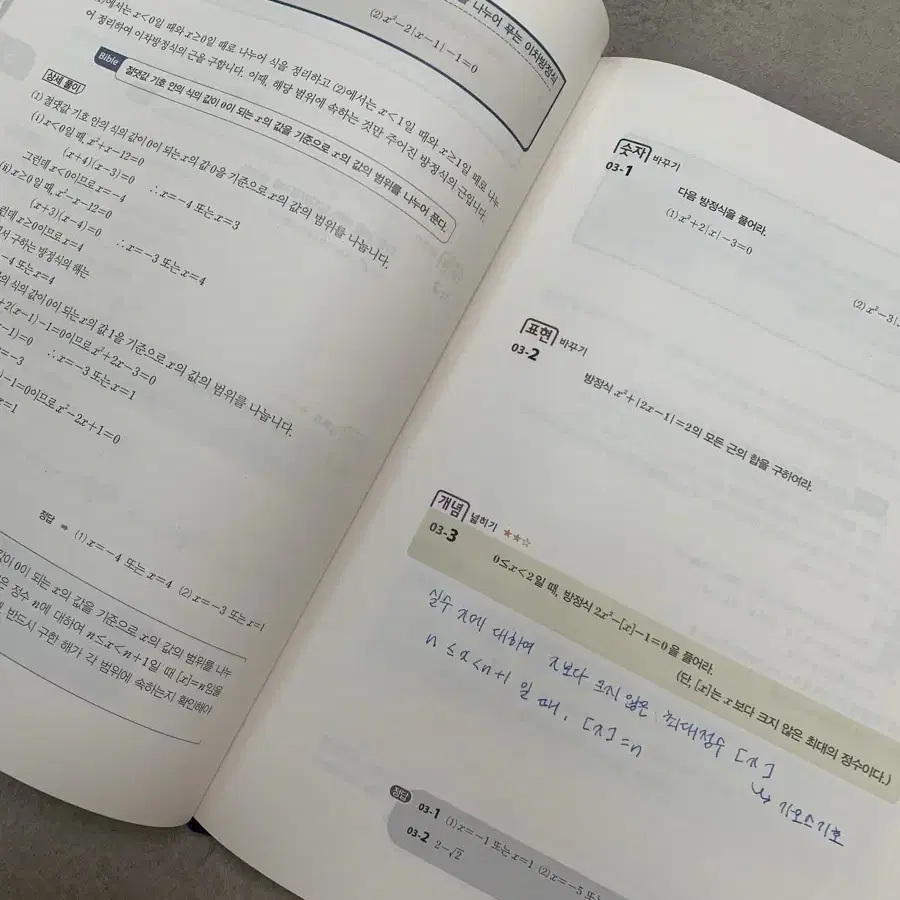 나누어 푸는 이차방정식
(2) x²-2|x-1|-1=0
에서는 x<0일 때와 x≥0일 때로 나누어 식을 정리하고 (2)에서는 x<1일 때와 x≥1일 때로 나누
어 정리하여 이차방정식의 근을 구합니다. 이때, 해당 범위에 속하는 것만 주어진 방정식의 근입니다.
Bible 절댓값 기호 안의 식의 값이 0이 되는 x의 값을 기준으로 x의 값의 범위를 나누어 푼다.
상세 풀이
(1) 절댓값 기호 안의 식의 값이 0이 되는 x의 값 0을 기준으로 x의 값의 범위를 나눕니다.
(i) x<0일 때, x²+x-12=0
(x+4)(x-3)=0 ∴ x=-4 또는 x=3
그런데 x<0이므로 x=-4
(ii) x≥0일 때, x²-x-12=0
(x+3)(x-4)=0 ∴ x=-3 또는 x=4
런데 x≥0이므로 x=4
서 구하는 방정식의 해는
-4 또는 x=4
의 식의 값이 0이 되는 x의 값 1을 기준으로 x의 값의 범위를 나눕니다.
+2(x-1)-1=0이므로 x²+2x-3=0
(x-1)=0 ∴ x=-3 또는 x=1
x=-3
)-1=0이므로 x²-2x+1=0
x=1
정답 ⇒ (1) x=-4 또는 x=4 (2) x=-3 또는 x=1
값이 0이 되는 x의 값을 기준으로 x의 값의 범위를 나누
은 정수 n에 대하여 n≤x<n+1일 때 [x]=n임을
반드시 구한 해가 각 범위에 속하는지 확인해야
숫자 바꾸기
03-1
다음 방정식을 풀어라.
(1) x²+2|x|-3=0
(2) x²-3|
표현 바꾸기
03-2
방정식 x²+|2x-1|=2의 모든 근의 합을 구하여라.
개념 넓히기 ★★☆
03-3
0≤x<2일 때, 방정식 2x²-[x]-1=0을 풀어라.
(단, [x]는 x보다 크지 않은 최대의 정수이다.)
실수 x에 대하여 x보다 크지 않은 최대정수 [x]
↳ 가우스기호
n≤x<n+1 일 때, [x]=n
정답
03-1 (1) x=-1 또는 x=1 (2) x=-5 또는
03-2 2-√2